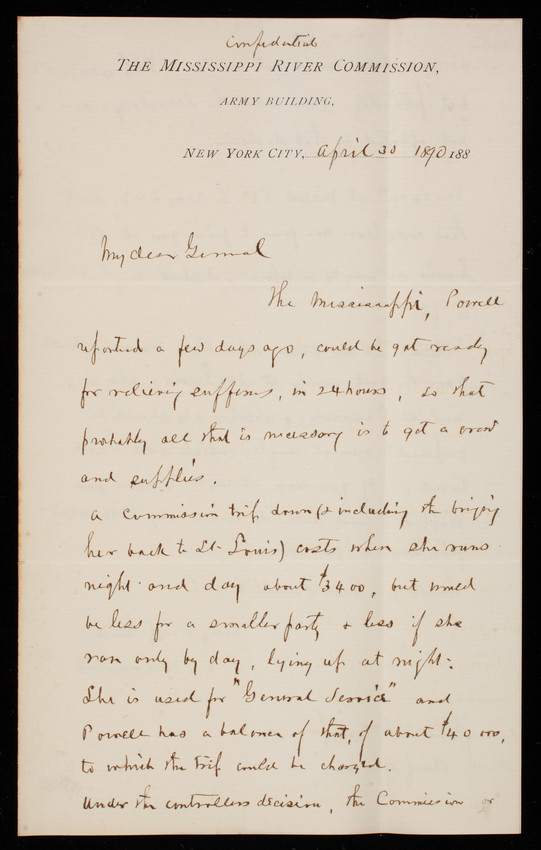 Confidential
THE MISSISSIPPI RIVER COMMISSION,
ARMY BUILDING,
NEW YORK CITY, April 30 1890 188
My dear General
The Mississippi, Powell
reported a few days ago, could be got ready
for relieving sufferers, in 24 hours, so that
probably all that is necessary is to get a crew
and supplies.
A Commission trip down (& including the bringing
her back to St. Louis) costs when she runs
night and day about $3400, but would
be less for a smaller party & less if she
ran only by day, lying up at night.
She is used for "General Service" and
Powell has a balance of that, of about $40 000,
to which the trip could be charged.
Under the controllers decision, the Commission or